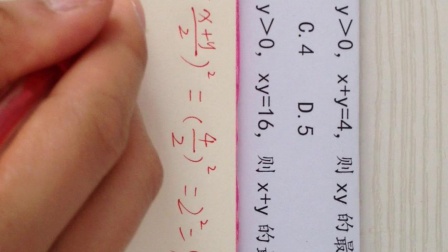 y>0, x+y=4, 则 xy 的最
C.4 D.5
y>0, xy=16, 则 x+y 的
x+y/2)² = (4/2)² = 2² =